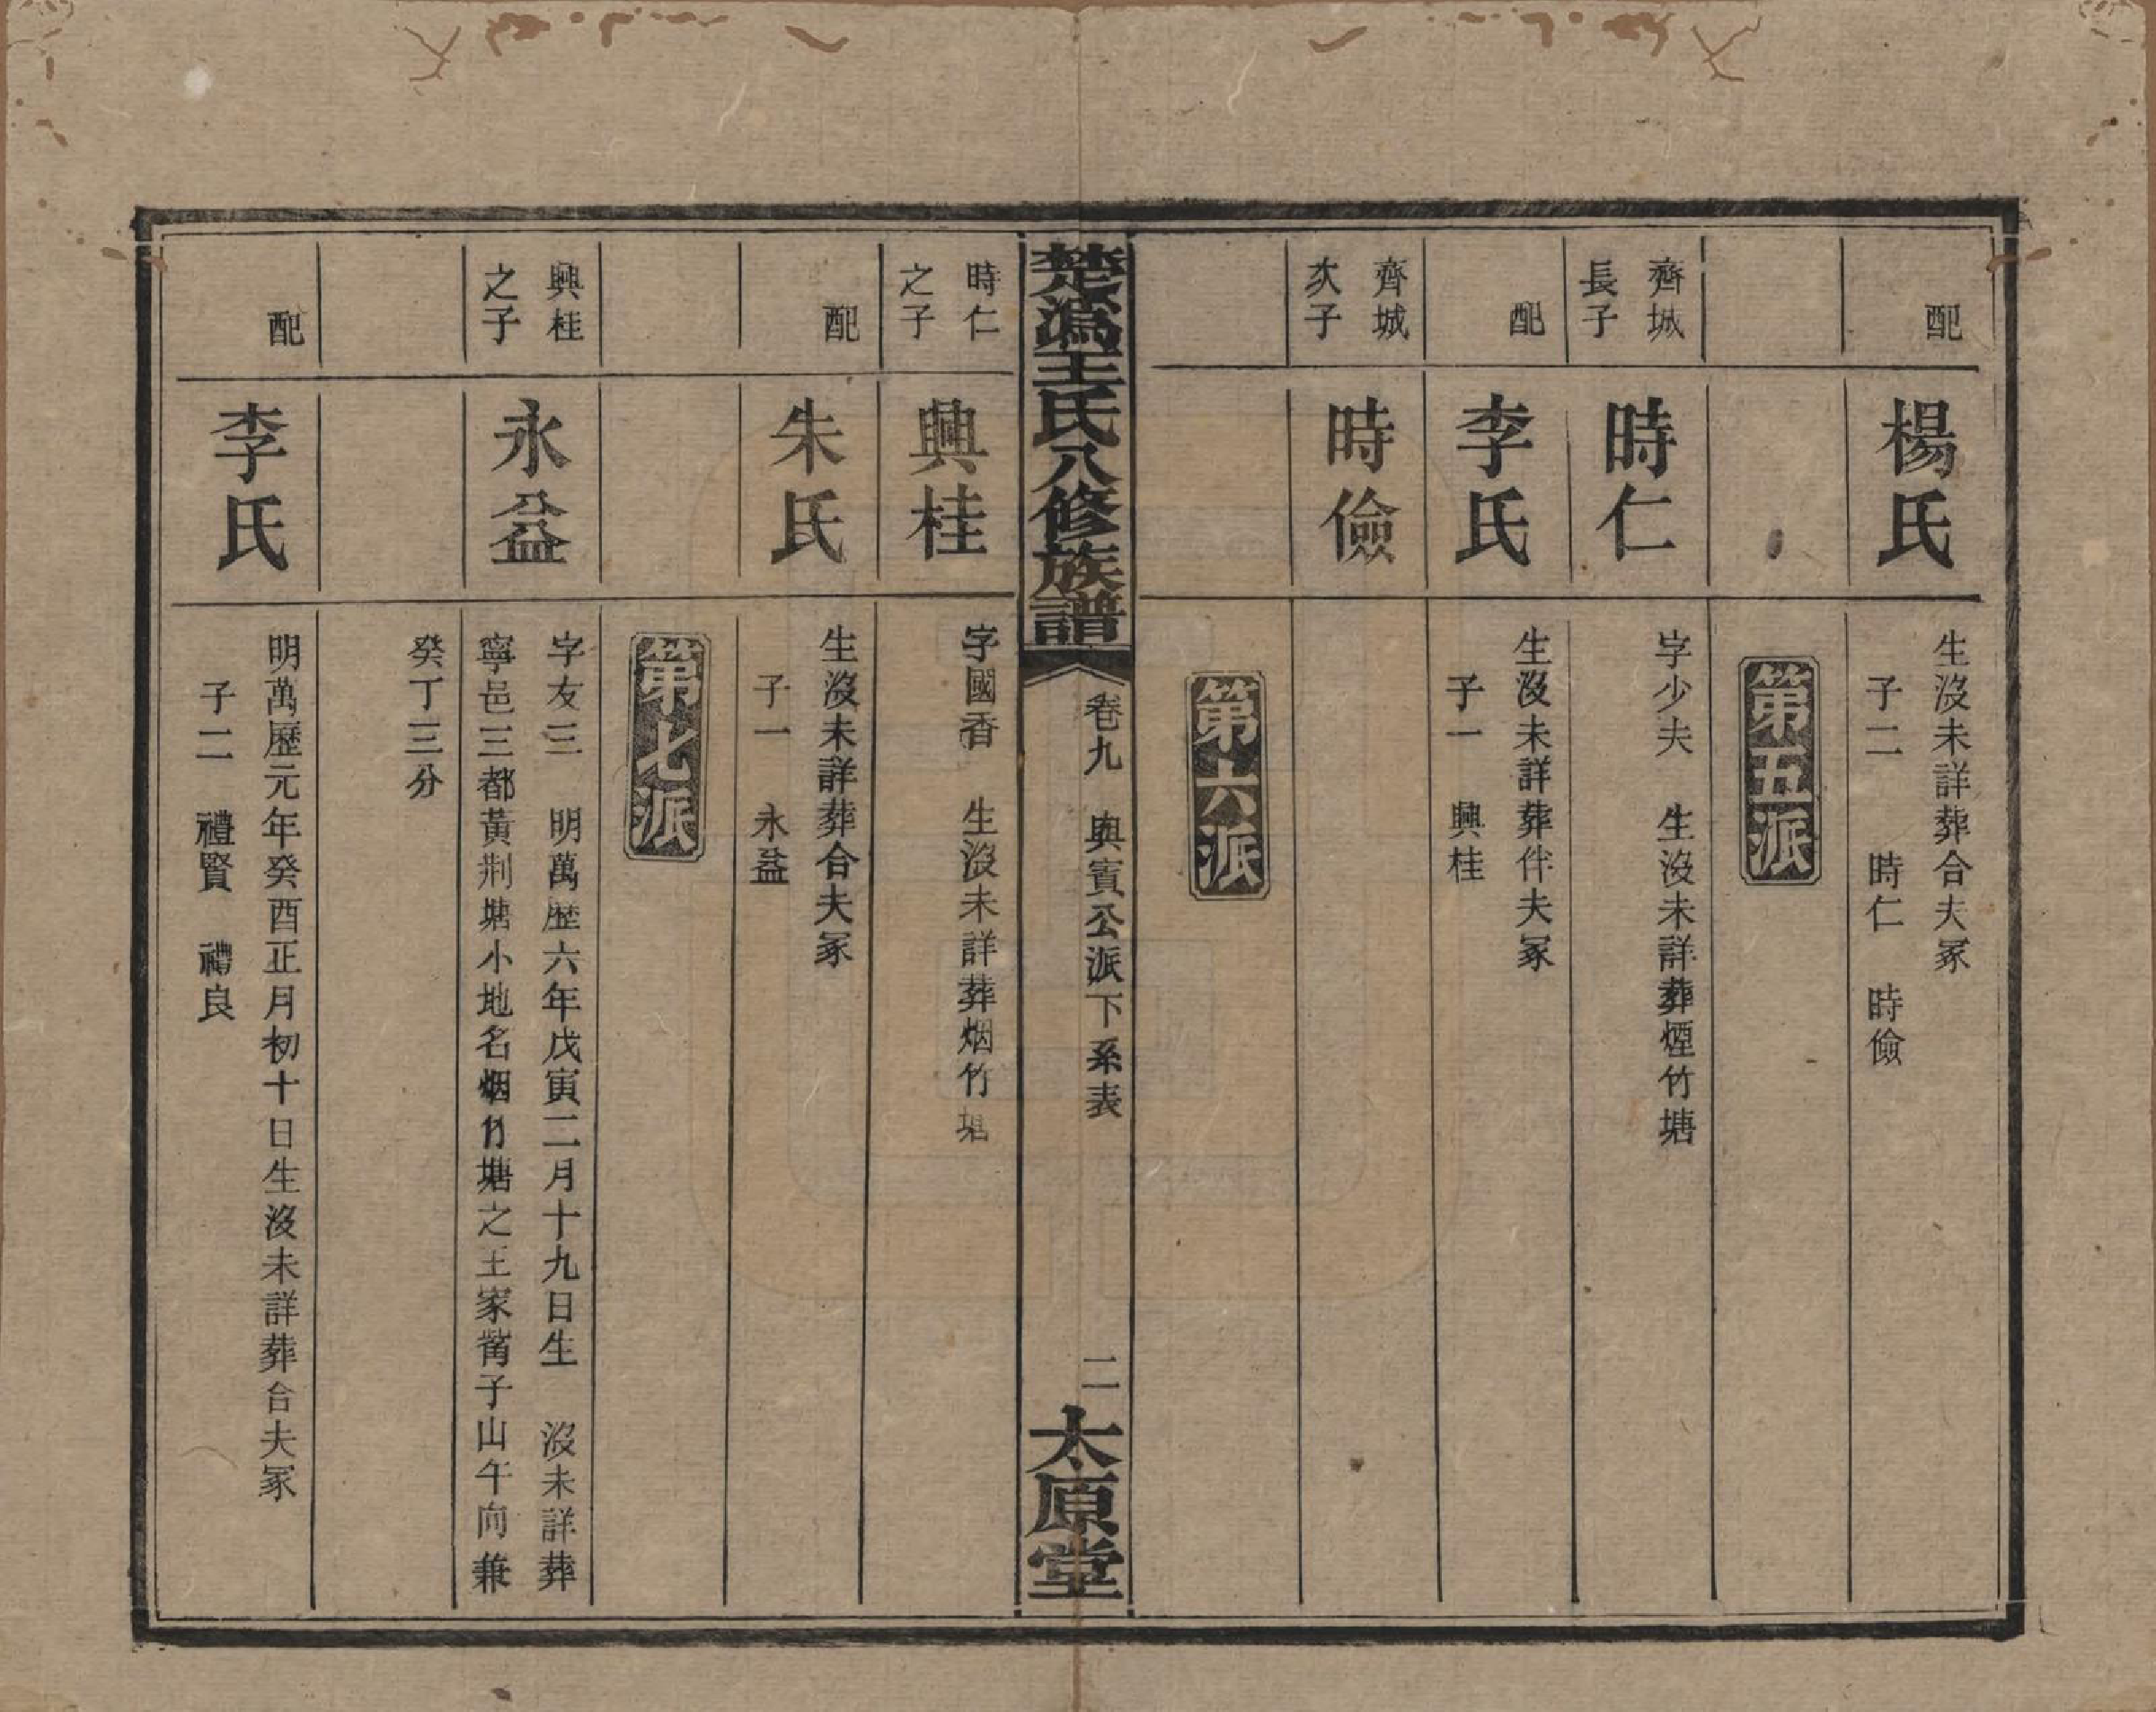 配
楊氏
生沒未詳葬合夫冢
子二　時仁　時儉
第五派
齊城
長子
時仁
字少夫　生沒未詳葬煙竹塘
配
李氏
生沒未詳葬伴夫冢
子一　興桂
齊城
次子
時儉
第六派
楚溈王氏八修族譜
卷九　與賓公派下系表
二
太原堂
時仁
之子
興桂
字國香　生沒未詳葬烟竹塘
配
朱氏
生沒未詳葬合夫冢
子一　永益
第七派
興桂
之子
永益
字友三　明萬歷六年戊寅二月十九日生　沒未詳葬
寧邑三都黃荆塘小地名烟竹塘之王家觜子山午向兼
癸丁三分
配
李氏
明萬歷元年癸酉正月初十日生沒未詳葬合夫冢
子二　禮賢　禮良